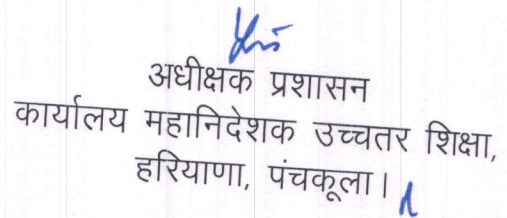 अधीक्षक प्रशासन
कार्यालय महानिदेशक उच्चतर शिक्षा,
हरियाणा, पंचकूला।